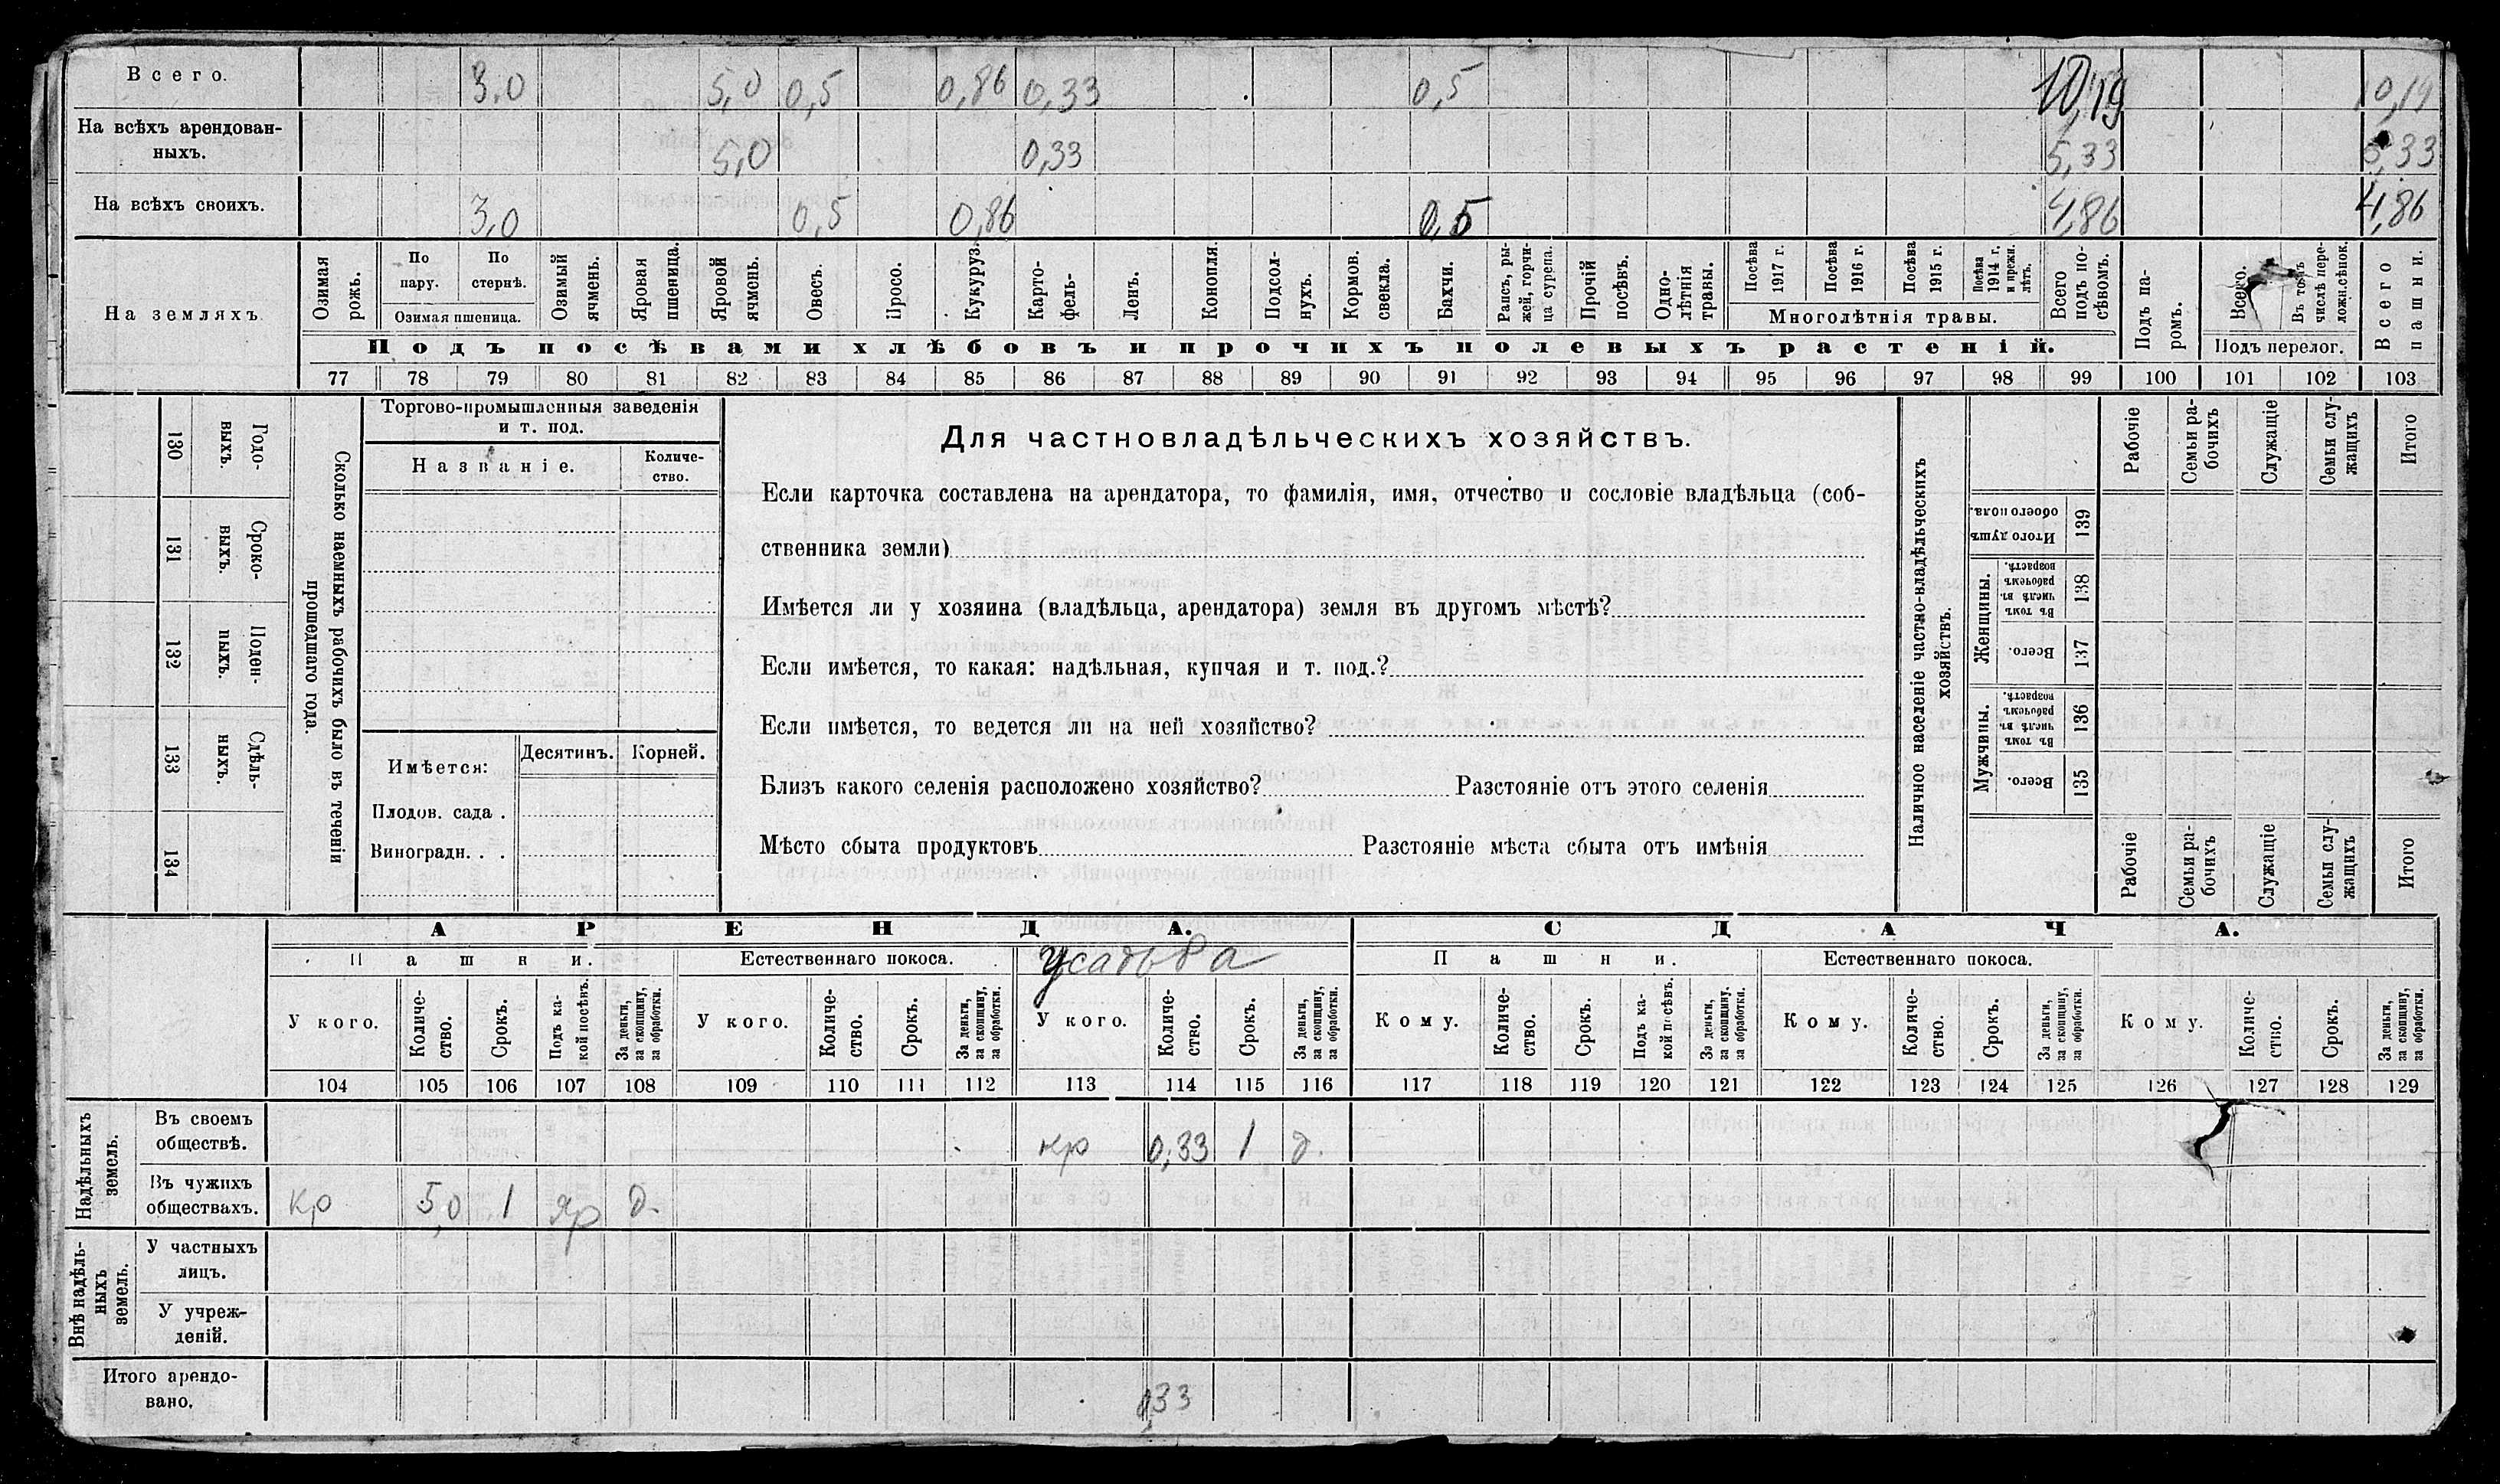 Всего. 3,0 5,0 0,5 0,86 0,33 0,5 10,19 10,19
На всѣхъ арендован-
ныхъ. 5,0 0,33 5,33 5,33
На всѣхъ своихъ. 3,0 0,5 0,86 0,5 4,86 4,86
На земляхъ.
Озимая рожь.
По пару.
По стернѣ.
Озимая пшеница.
Озимый ячмень.
Яровая пшеница.
Яровой ячмень.
Овесъ.
Просо.
Кукуруз.
Карто-
фель.
Ленъ.
Конопля.
Подсол-
нухъ.
Кормов. свекла.
Бахчи.
Рапсъ, ры-
жей, горчи-
ца сурепа.
Прочій посѣвъ.
Одно-
лѣтнія травы.
Посѣва 1917 г.
Посѣва 1916 г.
Посѣва 1915 г.
Посѣва 1914 г. и прежн. лѣтъ.
Многолѣтнія травы.
Всего подъ по-
сѣвомъ.
Подъ па-
ромъ.
Всего.
Въ томъ числѣ пере-
ложн.сѣнок.
Подъ перелог.
Всего пашни.
Подъ посѣвами хлѣбовъ и прочихъ полевыхъ растеній.
77 78 79 80 81 82 83 84 85 86 87 88 89 90 91 92 93 94 95 96 97 98 99 100 101 102 103
130 Годо-
выхъ.
131 Сроко-
выхъ.
132 Поден-
ныхъ.
133 Сдѣль-
ныхъ.
134
Сколько наемныхъ рабочихъ было въ теченіи
прошедшаго года.
Торгово-промышленныя заведенія
и т. под.
Названіе.
Количе-
ство.
Имѣется: Десятинъ. Корней.
Плодов. сада .
Виноградн. . .
Для частновладѣльческихъ хозяйствъ.
Если карточка составлена на арендатора, то фамилія, имя, отчество и сословіе владѣльца (соб-
ственника земли)
Имѣется ли у хозяина (владѣльца, арендатора) земля въ другомъ мѣстѣ?
Если имѣется, то какая: надѣльная, купчая и т. под.?
Если имѣется, то ведется ли на ней хозяйство?
Близъ какого селенія расположено хозяйство? Разстояніе отъ этого селенія
Мѣсто сбыта продуктовъ Разстояніе мѣста сбыта отъ имѣнія
Наличное населеніе частно-владѣльческихъ
хозяйствъ.
Рабочіе
Семьи ра-
бочихъ
Служащіе
Семьи слу-
жащихъ
Итого
Итого душъ обоего пола. 139
Женщины.
Въ томъ числѣ въ рабочемъ возрастѣ. 138
Всего. 137
Мужчины.
Въ томъ числѣ въ рабочемъ возрастѣ. 136
Всего. 135
Рабочіе
Семьи ра-
бочихъ
Служащіе
Семьи слу-
жащихъ
Итого
АРЕНДА. СДАЧА.
Пашни. Естественнаго покоса. усадьба Пашни. Естественнаго покоса.
У кого.
Количе-
ство.
Срокъ.
Подъ ка-
кой посѣвъ.
За деньги, за скопщину, за обработки.
У кого.
Количе-
ство.
Срокъ.
За деньги, за скопщину, за обработки.
У кого.
Количе-
ство.
Срокъ.
За деньги, за скопщину, за обработки.
Кому.
Количе-
ство.
Срокъ.
Подъ ка-
кой посѣвъ.
За деньги, за скопщину, за обработки.
Кому.
Количе-
ство.
Срокъ.
За деньги, за скопщину, за обработки.
Кому.
Количе-
ство.
Срокъ.
За деньги, за скопщину, за обработки.
104 105 106 107 108 109 110 111 112 113 114 115 116 117 118 119 120 121 122 123 124 125 126 127 128 129
Надѣльныхъ земель.
Въ своемъ
обществѣ. кр 0,33 1 д.
Въ чужихъ
обществахъ. кр 5,0 1 яр д.
Внѣ надѣль-
ныхъ земель.
У частныхъ
лицъ.
У учреж-
деній.
Итого арендо-
вано. 0,33